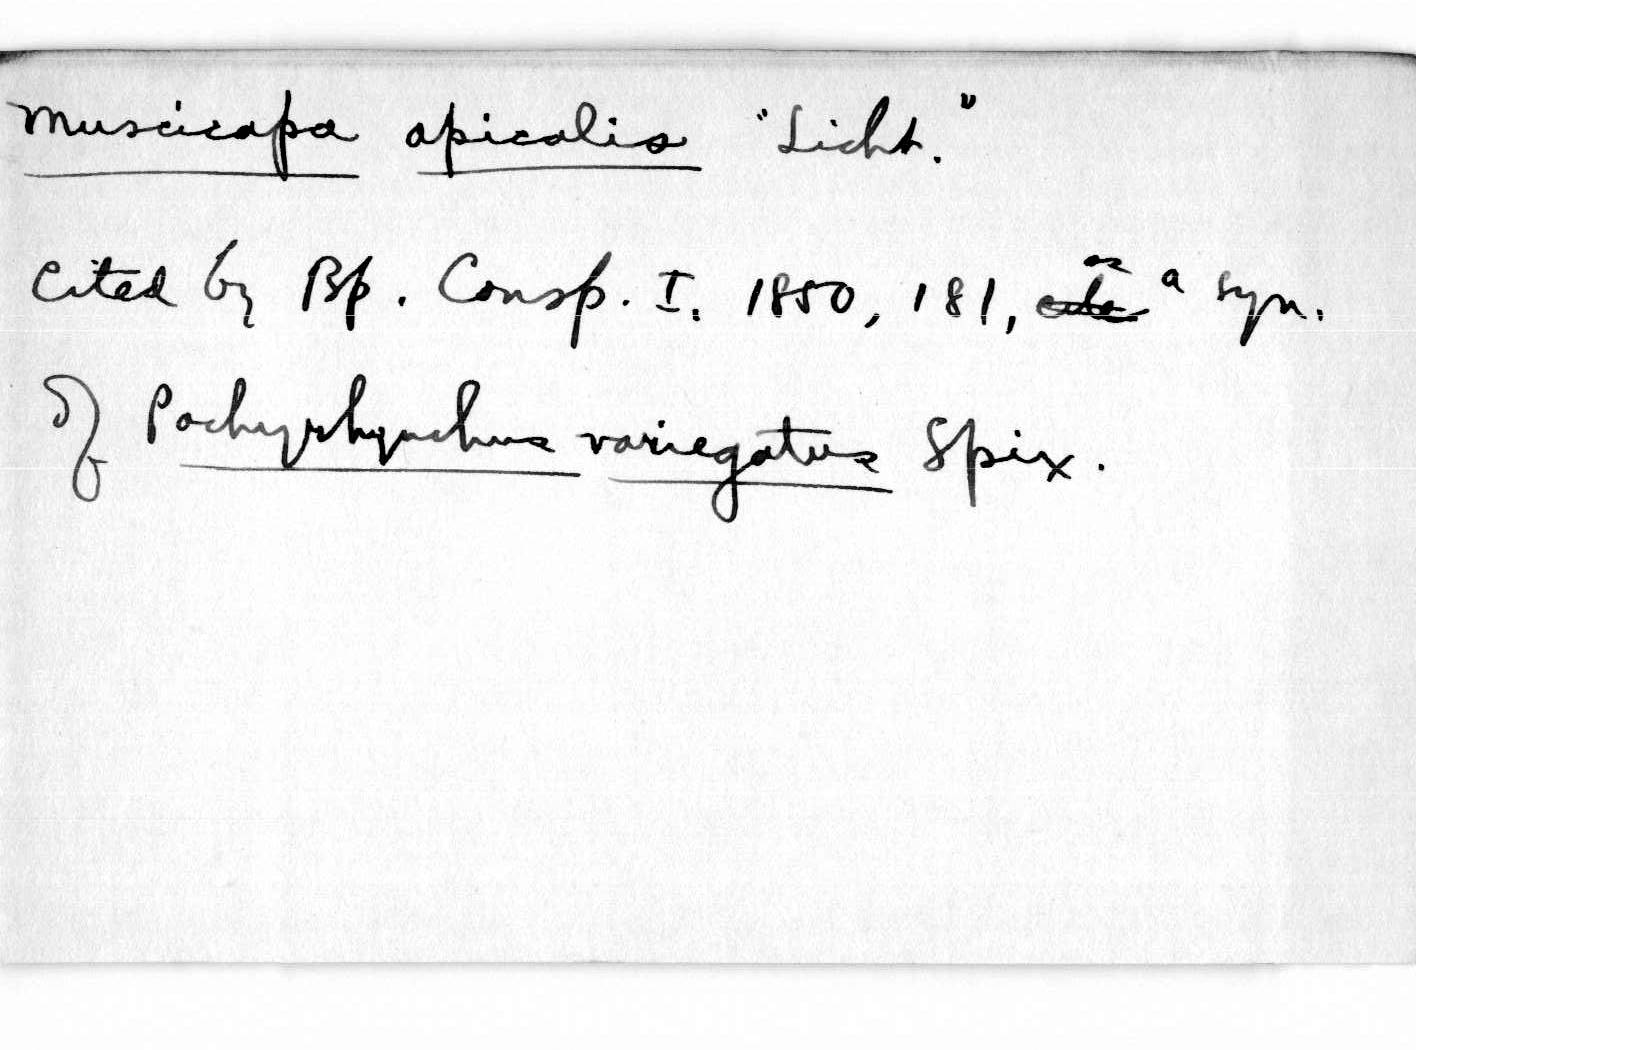 Muscicapa apicalis "Licht."
Cited by Bp. Consp. I. 1850, 181, as a syn.
of Pachyrhynchus variegatus Spix.